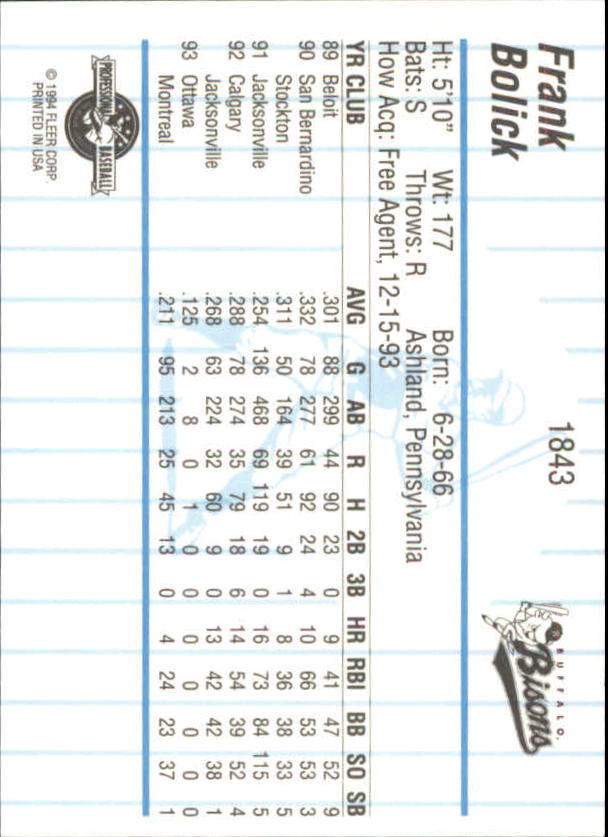 Frank
Bolick
1843
BUFFALO.
Bisons
Ht: 5'10" Wt: 177 Born: 6-28-66
Bats: S Throws: R Ashland, Pennsylvania
How Acq: Free Agent, 12-15-93
YR CLUB AVG G AB R H 2B 3B HR RBI BB SO SB
89 Beloit .301 88 299 44 90 23 0 9 41 47 52 9
90 San Bernardino .332 78 277 61 92 24 4 10 66 53 53 3
Stockton .311 50 164 39 51 9 1 8 36 38 33 5
91 Jacksonville .254 136 468 69 119 19 0 16 73 84 115 5
92 Calgary .288 78 274 35 79 18 6 14 54 39 52 4
Jacksonville .268 63 224 32 60 9 0 13 42 42 38 1
93 Ottawa .125 2 8 0 1 0 0 0 0 0 0 0
Montreal .211 95 213 25 45 13 0 4 24 23 37 1
PROFESSIONAL BASEBALL
© 1994 FLEER CORP.
PRINTED IN USA